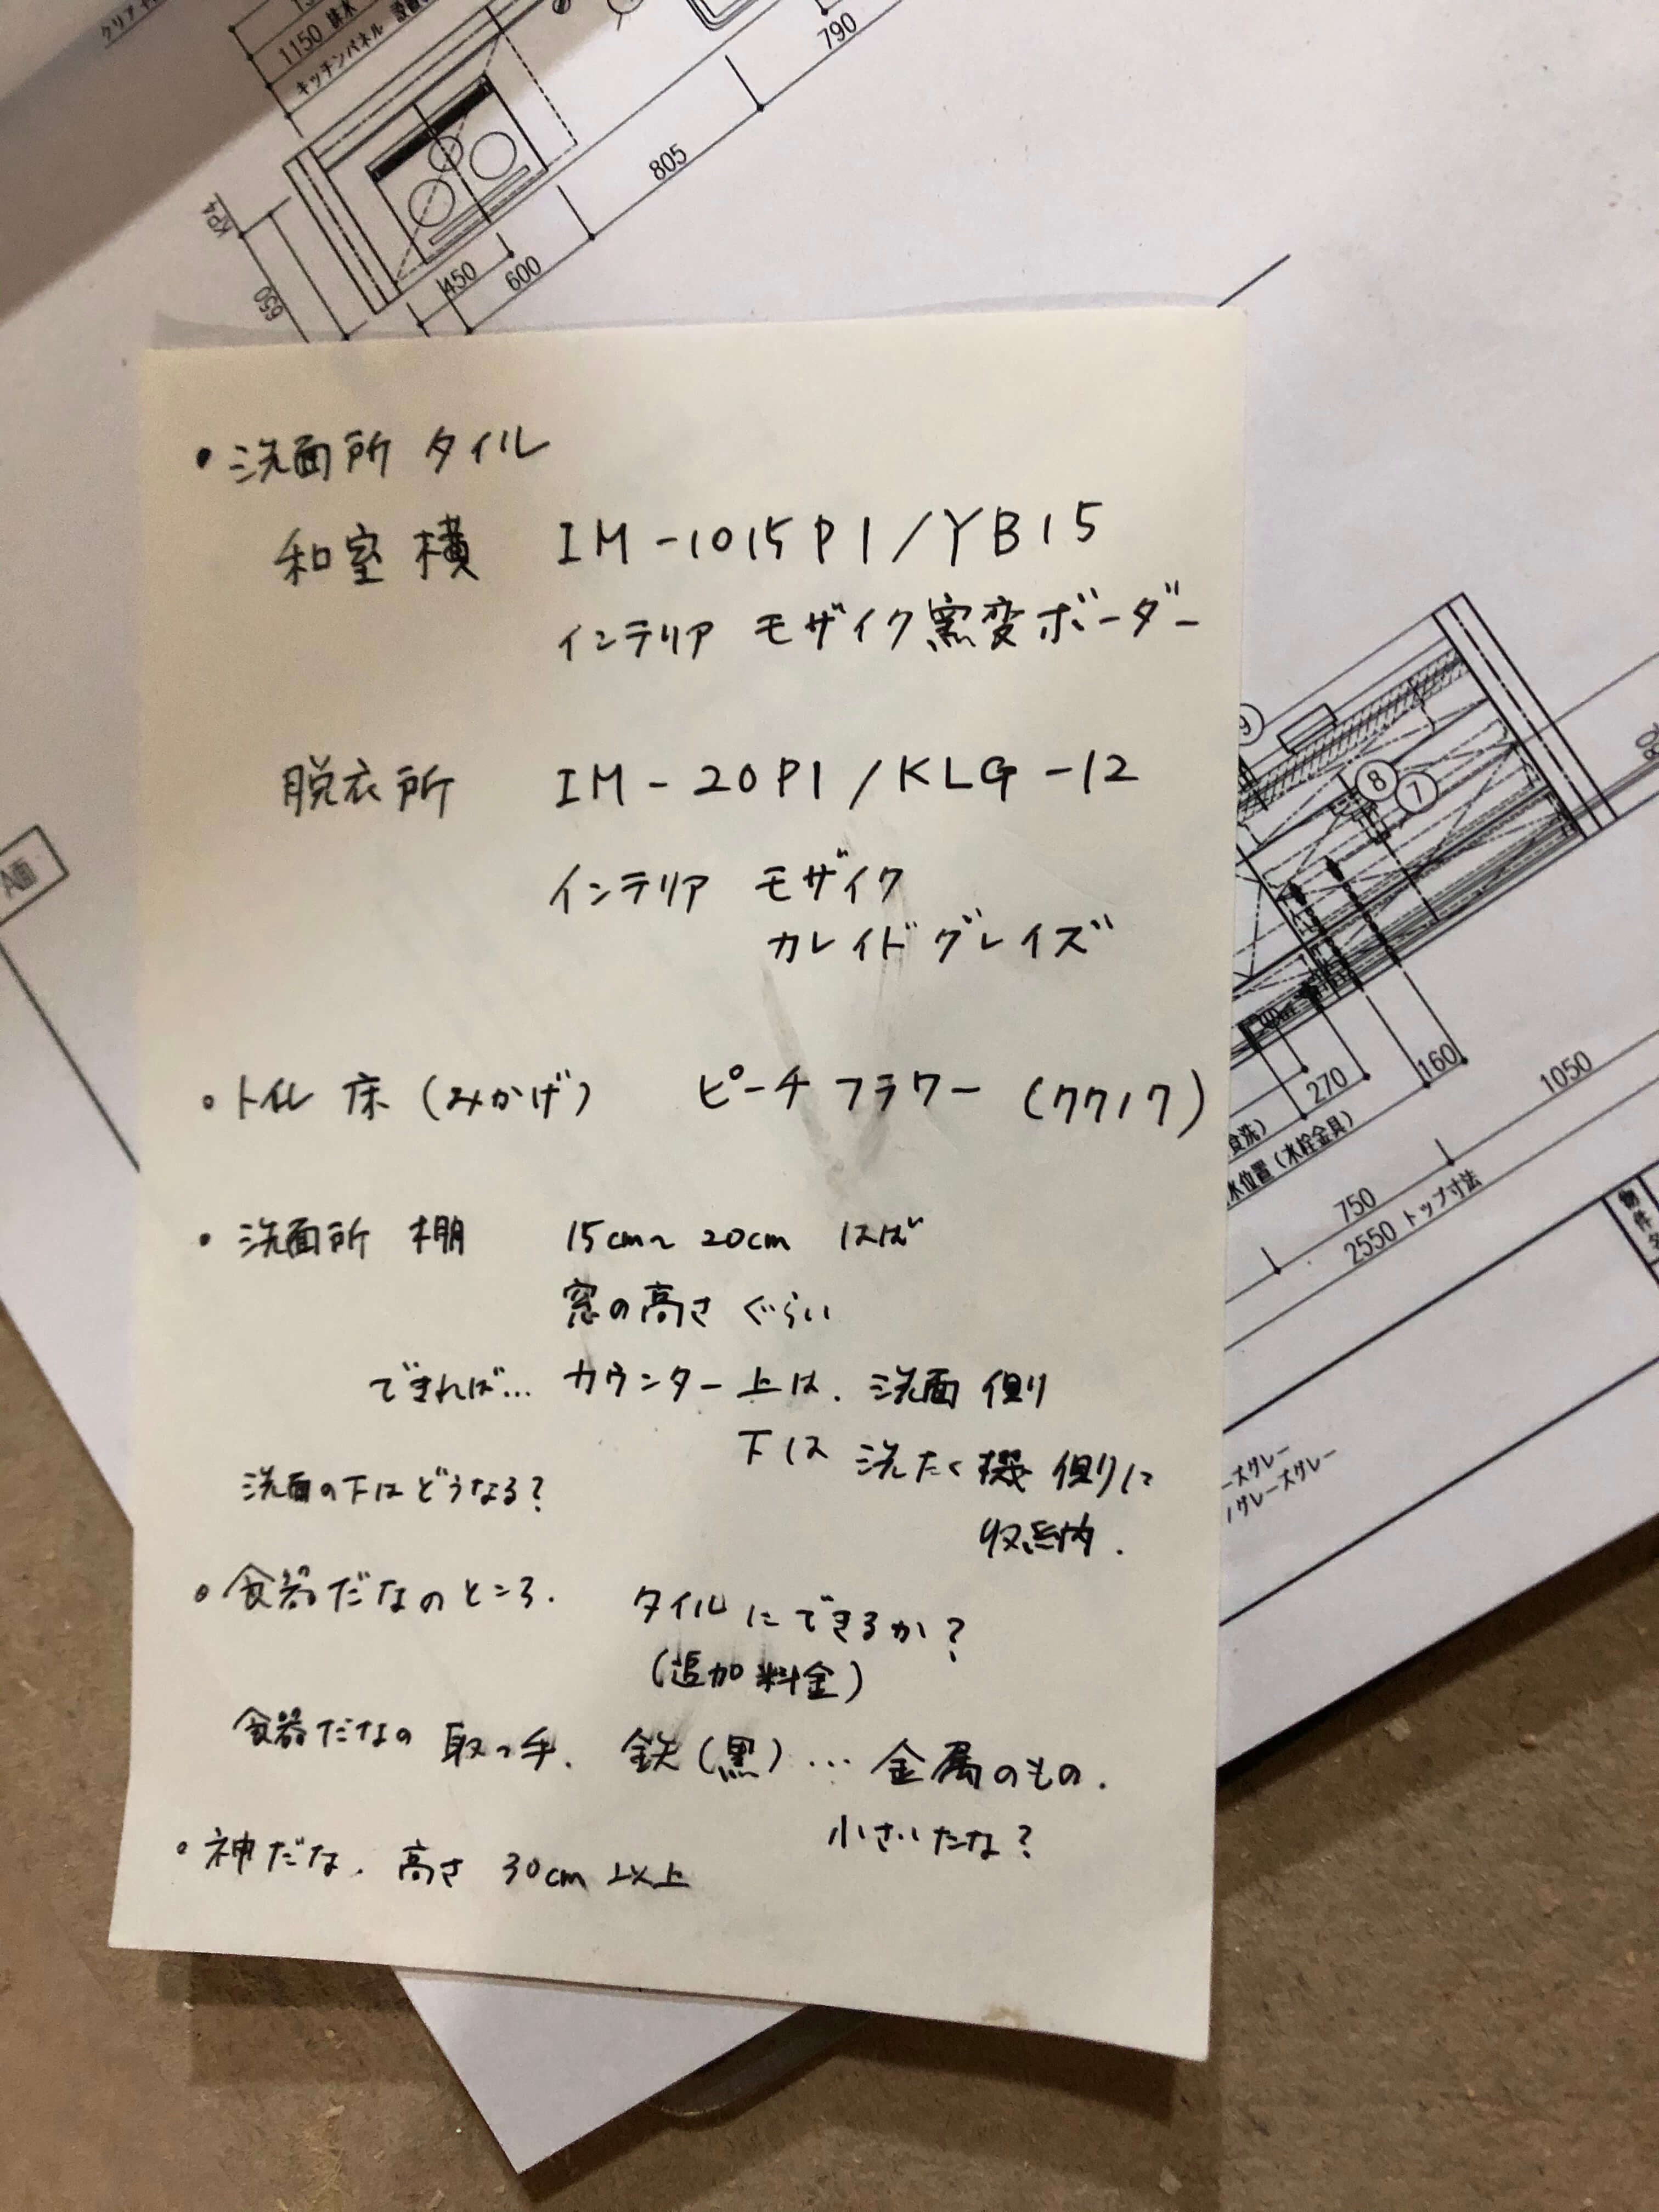 1150 排水
キッチンパネル
790
805
KP4
650
450
600
・洗面所 タイル
和室横 IM-1015P1/YB15
インテリア モザイク窯変ボーダー
脱衣所 IM-20P1/KLG-12
インテリア モザイク
カレイドグレイズ
・トイレ 床(みかげ) ピーチフラワー (7717)
・洗面所 棚 15cm~20cm はば
窓の高さぐらい
できれば… カウンター上は、洗面側
下は 洗たく機側に
収納.
洗面の下はどうなる?
・食器だなのところ. タイルにできるか?
(追加料金)
食器だなの取っ手. 鉄(黒)… 金属のもの.
小さいたな?
・神だな. 高さ 30cm以上
A面
9
8
7
270
160
1050
食洗)
水位置(水栓金具)
750
2550 トップ寸法